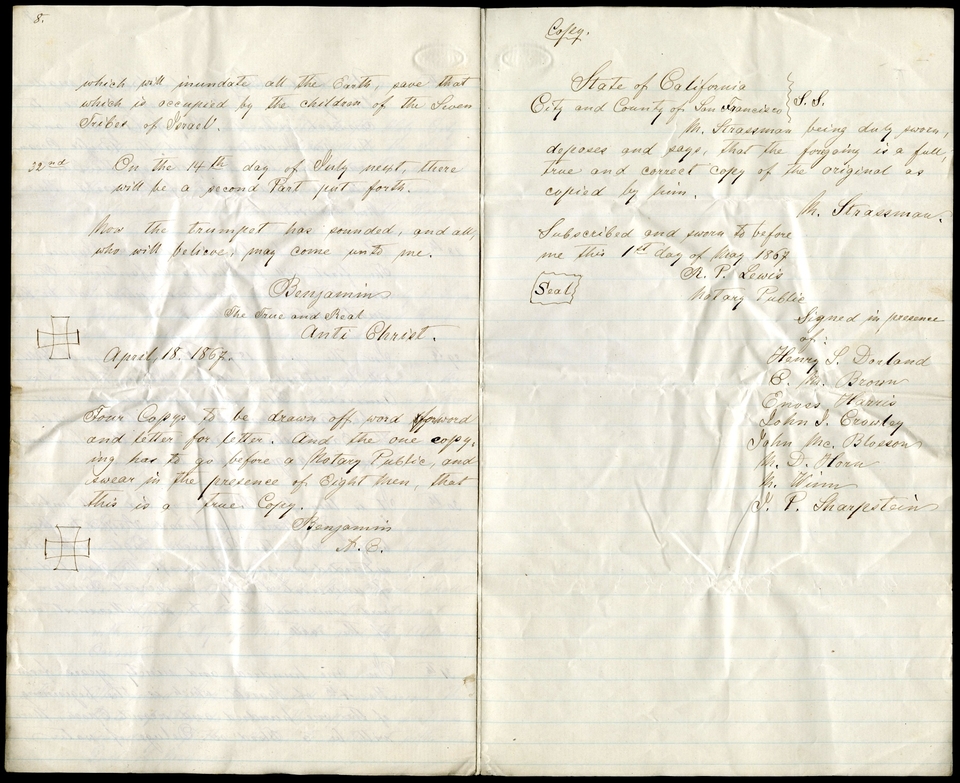 8.
which will inundate all the Earth, save that
which is occupied by the children of the Seven
Tribes of Israel.
32nd On the 14th day of July next, there
will be a second Part put forth.
Now the trumpet has sounded, and all,
who will believe, may come unto me.
Benjamin
The True and Real
Anti Christ.
April, 18. 1867.
Four Copys to be drawn off word for word
and letter for letter. And the one copy-
ing has to go before a Notary Public, and
swear in the presence of Eight Men, that
this is a True Copy.
Benjamin
A. C.
Copy.
State of California
City and County of San Francisco } S.S.
M. Strassman being duly sworn,
deposes and says, that the forgoing is a full,
true and correct copy of the original as
copied by him.
M. Strassman.
Subscribed and sworn to before
me this 1st day of May 1867
R. P. Lewis
Seal
Notary Public
Signed in presence
of:
Henry S. Dorland
E. M. Brown
Enoss Harris
John J. Crowley
John Mc. Blosson
M. D. Horn
M. Winn
J. P. Sharpstein